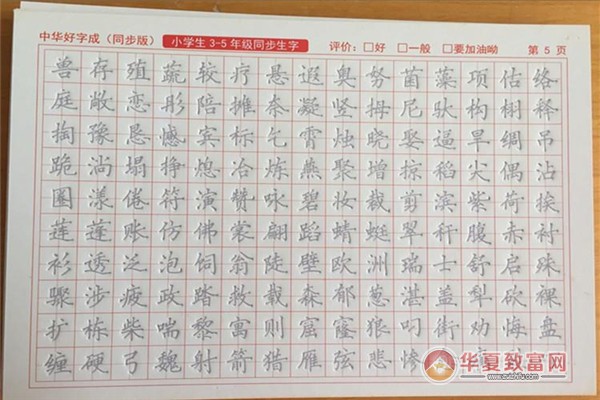 中华好字成（同步版） 小学生3-5年级同步生字 评价：□好 □一般 □要加油呦 第 5 页
兽存殖蔬较疗悬遐奥努菌藻项估络
庭敞恋彤陪摊奈凝竖拇尼驮构栩释
掏豫恳憾宾标乞霄烛晓娶逼旱绸吊
跪淌塌挣熄冶炼燕聚增掠稻尖偶沾
圈漾倦符演赞咏碧妆裁剪滨紫荷挨
莲蓬账仿佛裳翩蹈蜻蜓翠秆腹赤衬
衫透泛泡伺翁陡壁欧洲瑞士舒启殊
骤涉疲政踏救载森郁葱湛盖犁砍裸
扩栋柴喘黎寓则窟窿狼叼街劝悔盘
缠硬弓魏射箭猎雁弦悲惨
华夏致富网
www.zxzhifu.com